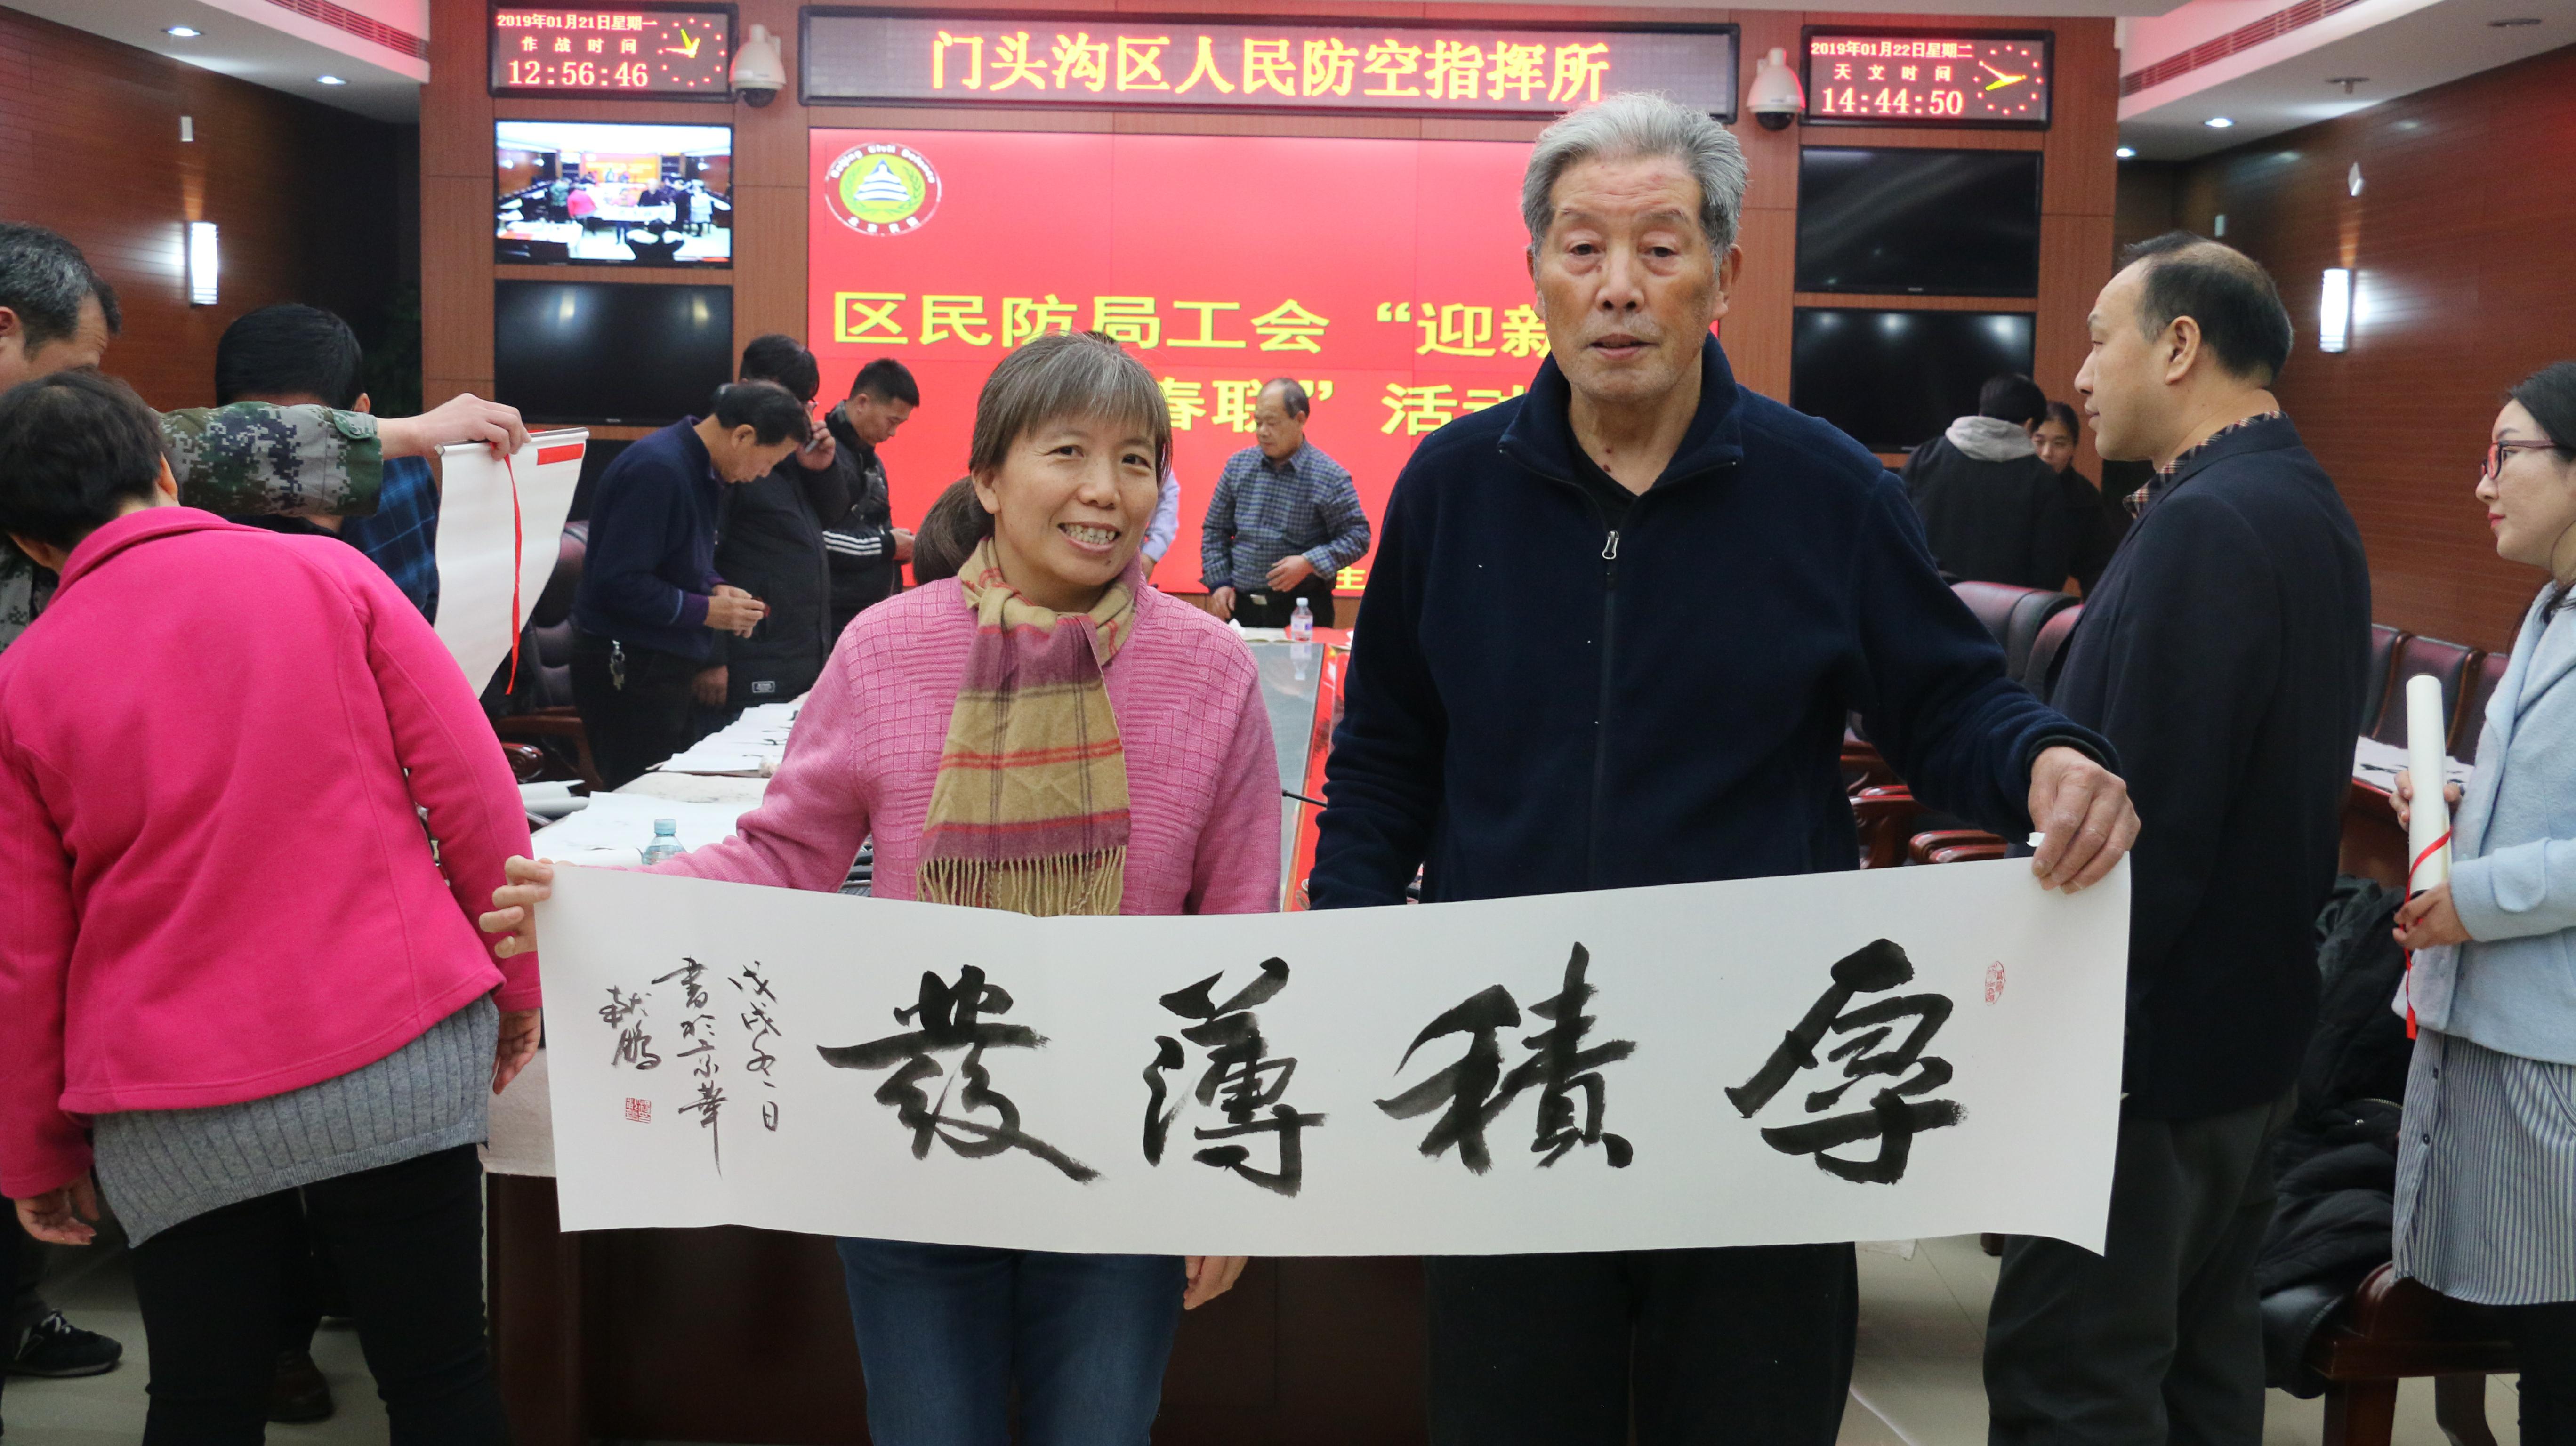 2019年01月21日星期一
作战时间
12:56:46
门头沟区人民防空指挥所
2019年01月22日星期二
天文时间
14:44:50
Beijing Civil Defence
区民防局工会“迎新
春联”活动
主
厚積薄發
戊戌冬日
書於京華
献鵬